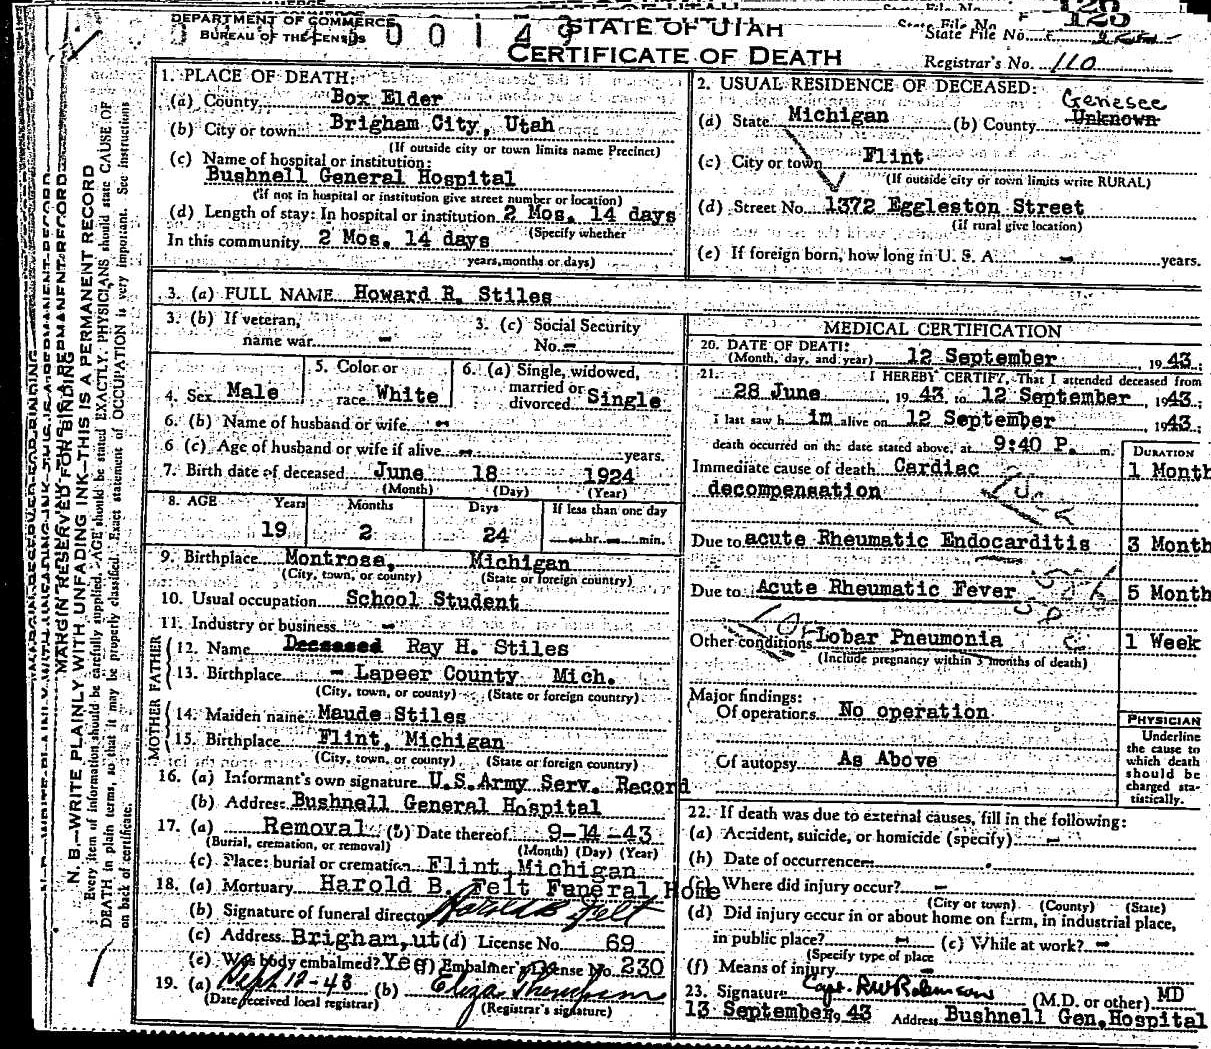 DEPARTMENT OF COMMERCE
BUREAU OF THE CENSUS
0 0 1 4 9
STATE OF UTAH
CERTIFICATE OF DEATH
State File No.
125
Registrar's No. 110
MARGIN RESERVED FOR BINDING
N. B.—WRITE PLAINLY WITH UNFADING INK—THIS IS A PERMANENT RECORD
Every item of information should be carefully supplied. AGE should be stated EXACTLY. PHYSICIANS should state CAUSE OF
DEATH in plain terms, so that it may be properly classified. Exact statement of OCCUPATION is very important. See instructions
on back of certificate.
1. PLACE OF DEATH:
(a) County Box Elder
(b) City or town Brigham City, Utah
(If outside city or town limits name Precinct)
(c) Name of hospital or institution:
Bushnell General Hospital
(If not in hospital or institution give street number or location)
(d) Length of stay: In hospital or institution 2 Mos. 14 days
(Specify whether
In this community 2 Mos. 14 days
years, months or days)
2. USUAL RESIDENCE OF DECEASED:
Genesee
(a) State Michigan (b) County Unknown
(c) City or town Flint
(If outside city or town limits write RURAL)
(d) Street No. 1372 Eggleston Street
(If rural give location)
(e) If foreign born, how long in U. S. A. - years.
3. (a) FULL NAME Howard R. Stiles
3. (b) If veteran,
name war -
3. (c) Social Security
No. -
4. Sex Male
5. Color or
race White
6. (a) Single, widowed,
married or
divorced Single
6. (b) Name of husband or wife -
6 (c) Age of husband or wife if alive - years.
7. Birth date of deceased June 18 1924
(Month) (Day) (Year)
8. AGE Years Months Days If less than one day
19 2 24 hr. min.
9. Birthplace Montrose, Michigan
(City, town, or county) (State or foreign country)
10. Usual occupation School Student
11. Industry or business -
FATHER
12. Name Deceased Ray H. Stiles
13. Birthplace - Lapeer County Mich.
(City, town, or county) (State or foreign country)
MOTHER
14. Maiden name Maude Stiles
15. Birthplace Flint, Michigan
(City, town, or county) (State or foreign country)
16. (a) Informant's own signature U.S.Army Serv. Record
(b) Address Bushnell General Hospital
17. (a) Removal (b) Date thereof 9-14-43
(Burial, cremation, or removal) (Month) (Day) (Year)
(c) Place: burial or cremation Flint, Michigan
18. (a) Mortuary Harold B. Felt Funeral Home
(b) Signature of funeral director Harold B Felt
(c) Address Brigham,ut (d) License No. 69
(e) Was body embalmed? Yes (f) Embalmer's License No. 230
19. (a) Sept 12-43 (b)
(Date received local registrar) (Registrar's signature)
MEDICAL CERTIFICATION
20. DATE OF DEATH:
(Month, day, and year) 12 September, 1943.
21. I HEREBY CERTIFY, That I attended deceased from
28 June, 1943, to 12 September, 1943.;
I last saw him alive on 12 September 1943.;
death occurred on the date stated above, at 9:40 P. m.
DURATION
Immediate cause of death Cardiac 1 Month
decompensation
Due to acute Rheumatic Endocarditis 3 Month
Due to Acute Rheumatic Fever 5 Month
Other conditions Lobar Pneumonia 1 Week
(Include pregnancy within 3 months of death)
Major findings:
Of operations No operation
Of autopsy As Above
PHYSICIAN
Underline
the cause to
which death
should be
charged sta-
tistically.
22. If death was due to external causes, fill in the following:
(a) Accident, suicide, or homicide (specify) -
(b) Date of occurrence -
(c) Where did injury occur? -
(City or town) (County) (State)
(d) Did injury occur in or about home on farm, in industrial place,
in public place? - (e) While at work? -
(Specify type of place
(f) Means of injury -
23. Signature Capt. RW Robinson (M.D. or other) MD
13 September 1943 Address Bushnell Gen.Hospital